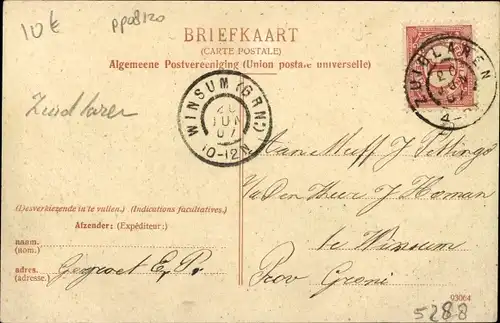 10€
pp08120
BRIEFKAART
(CARTE POSTALE)
Algemeene Postvereeniging (Union postale universelle)
ZUIDLAREN
4-
WINSUM (GRN:)
20
JUN
07
10-12N
Zuidlaren
Aan Mejf J
Van den Heer J Homan
te Winsum
Prov Groni
(Desverkiezende in te vullen.) (Indications facultatives.)
Afzender: (Expéditeur:)
naam.
(nom.)
adres.
(adresse.)
Gegroet E. P.
93064
5288